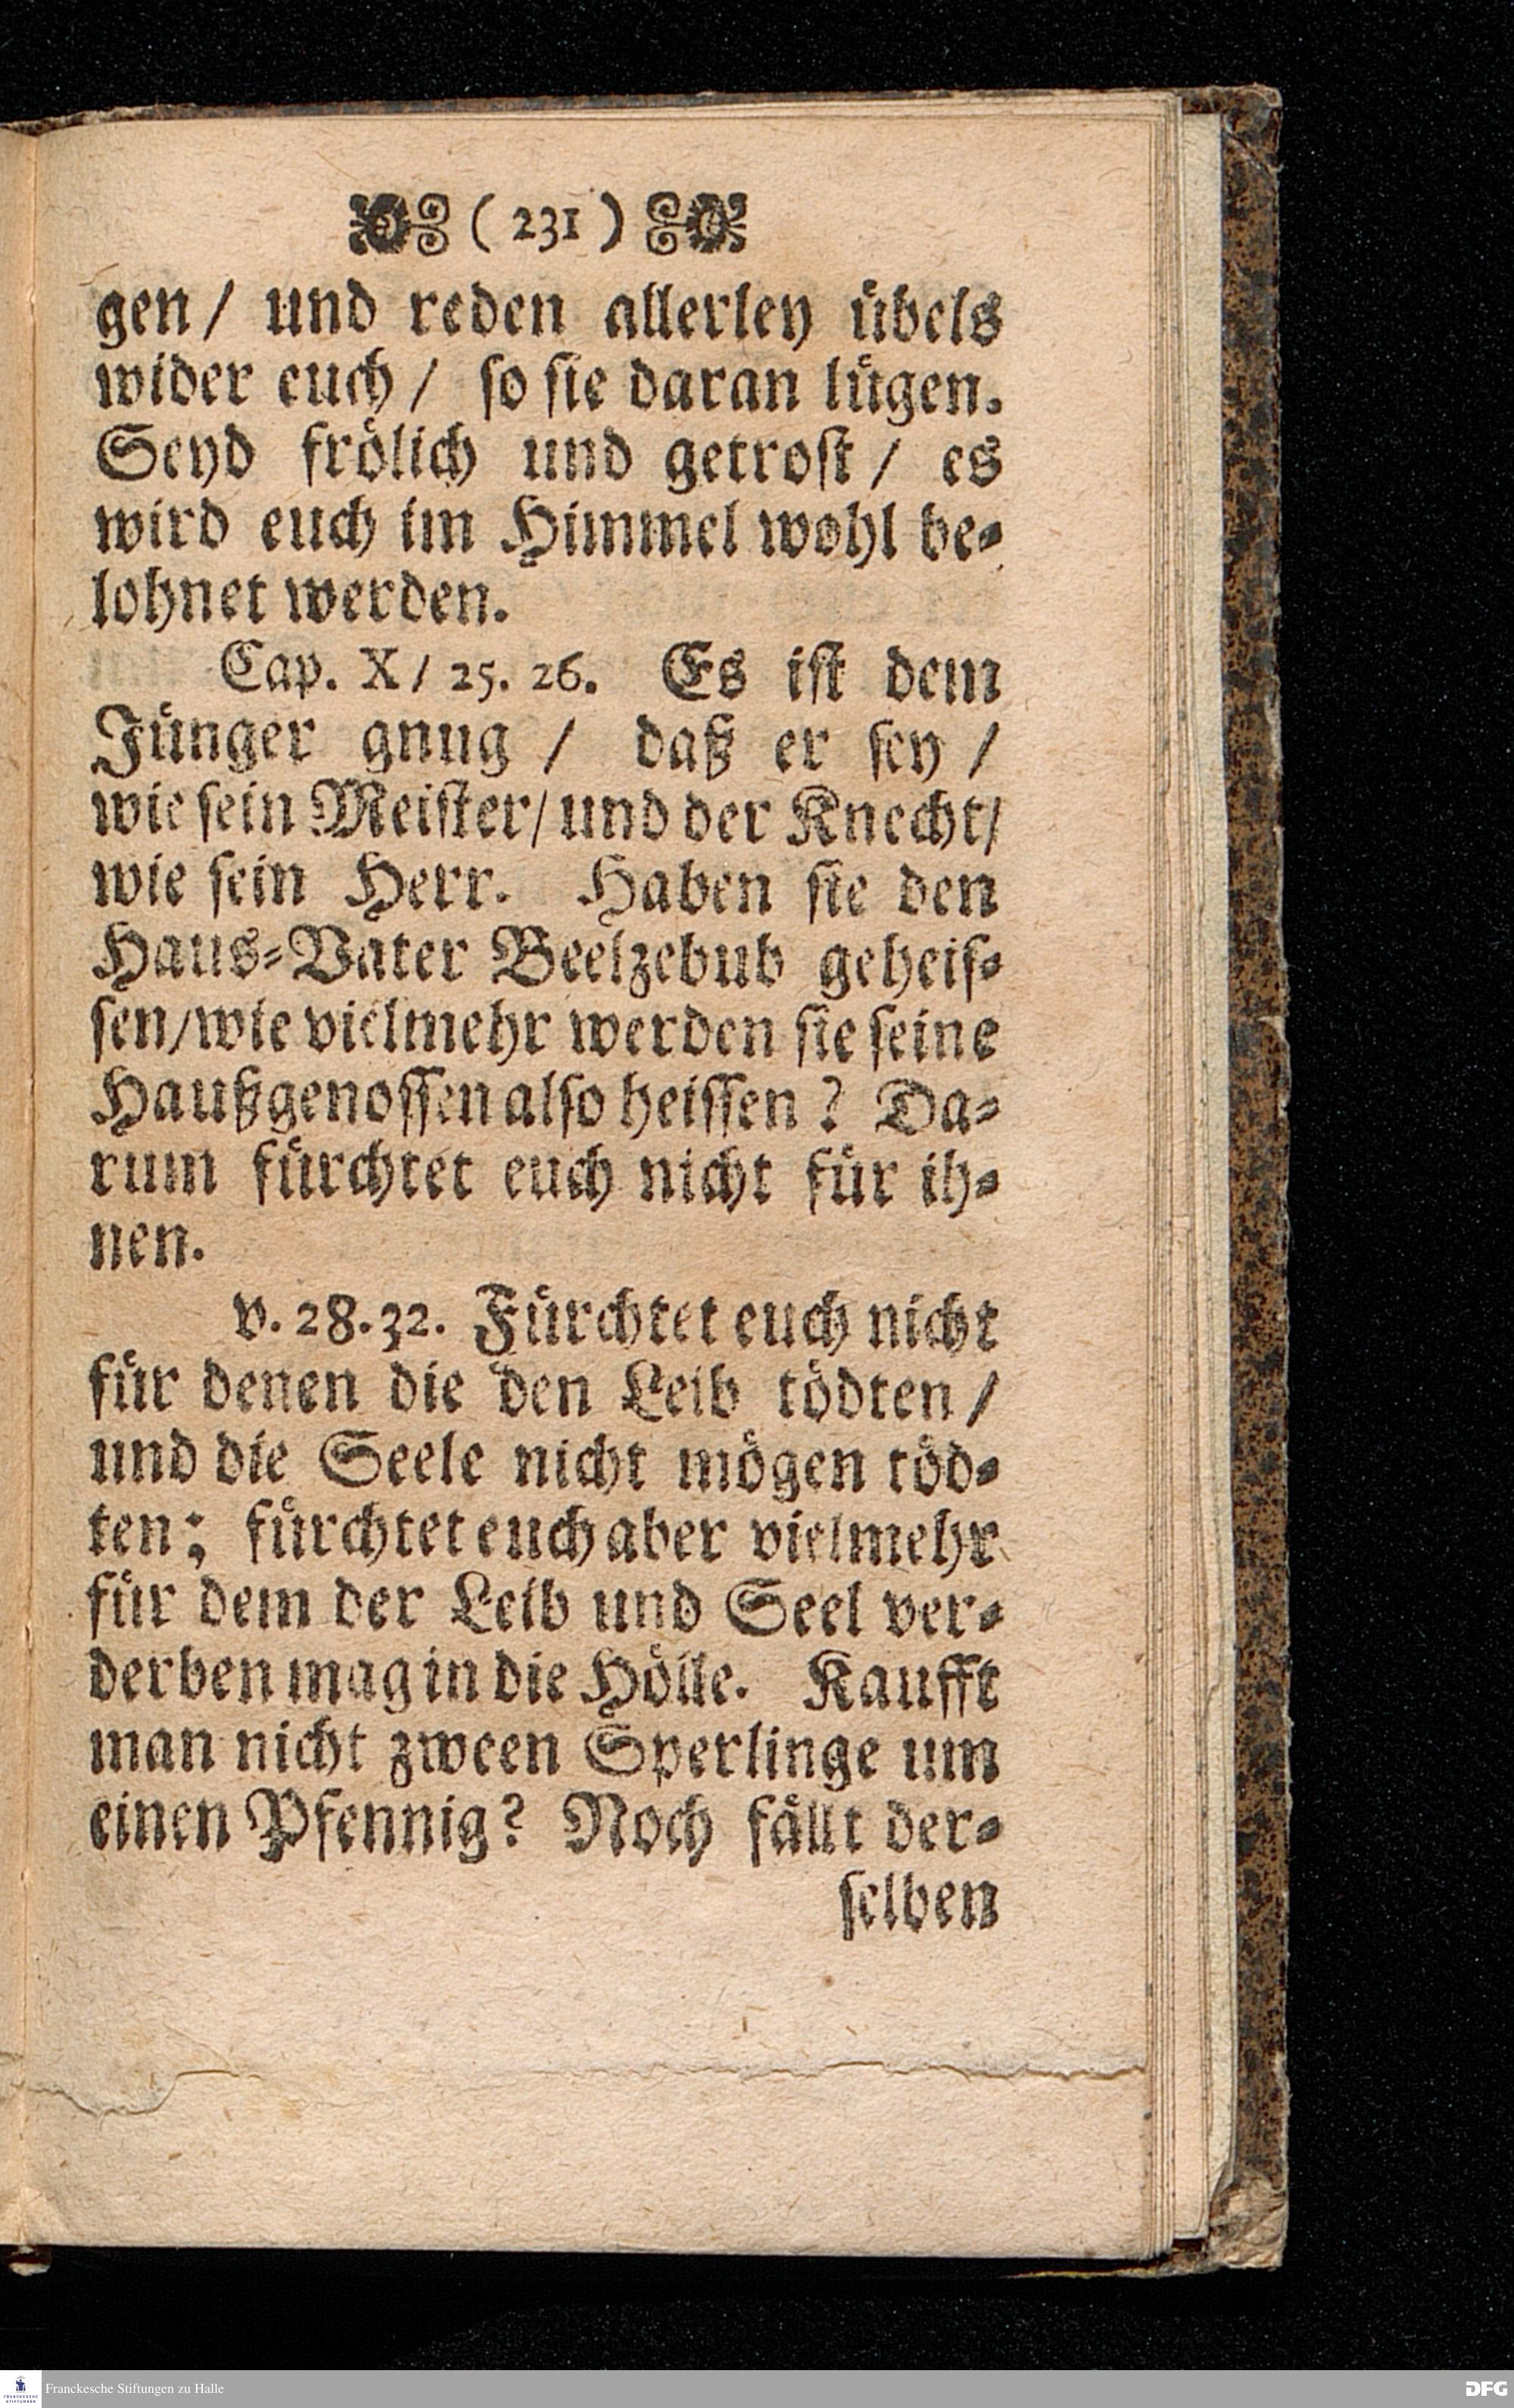 ( 231 )
gen / und reden allerley übels
wider euch / so sie daran lügen.
Seyd frölich und getrost / es
wird euch im Himmel wohl be-
lohnet werden.
Cap. X / 25. 26. Es ist dem
Jünger gnug / daß er sey /
wie sein Meister / und der Knecht /
wie sein Herr. Haben sie den
Haus-Vater Beelzebub geheis-
sen / wie vielmehr werden sie seine
Haußgenossen also heissen? Da-
rum fürchtet euch nicht für ih-
nen.
v. 28. 32. Fürchtet euch nicht
für denen die den Leib tödten /
und die Seele nicht mögen töd-
ten; fürchtet euch aber vielmehr
für dem der Leib und Seel ver-
derben mag in die Hölle. Kaufft
man nicht zween Sperlinge um
einen Pfennig? Noch fällt der-
selben
FRANCKESCHE STIFTUNGEN
Franckesche Stiftungen zu Halle
DFG